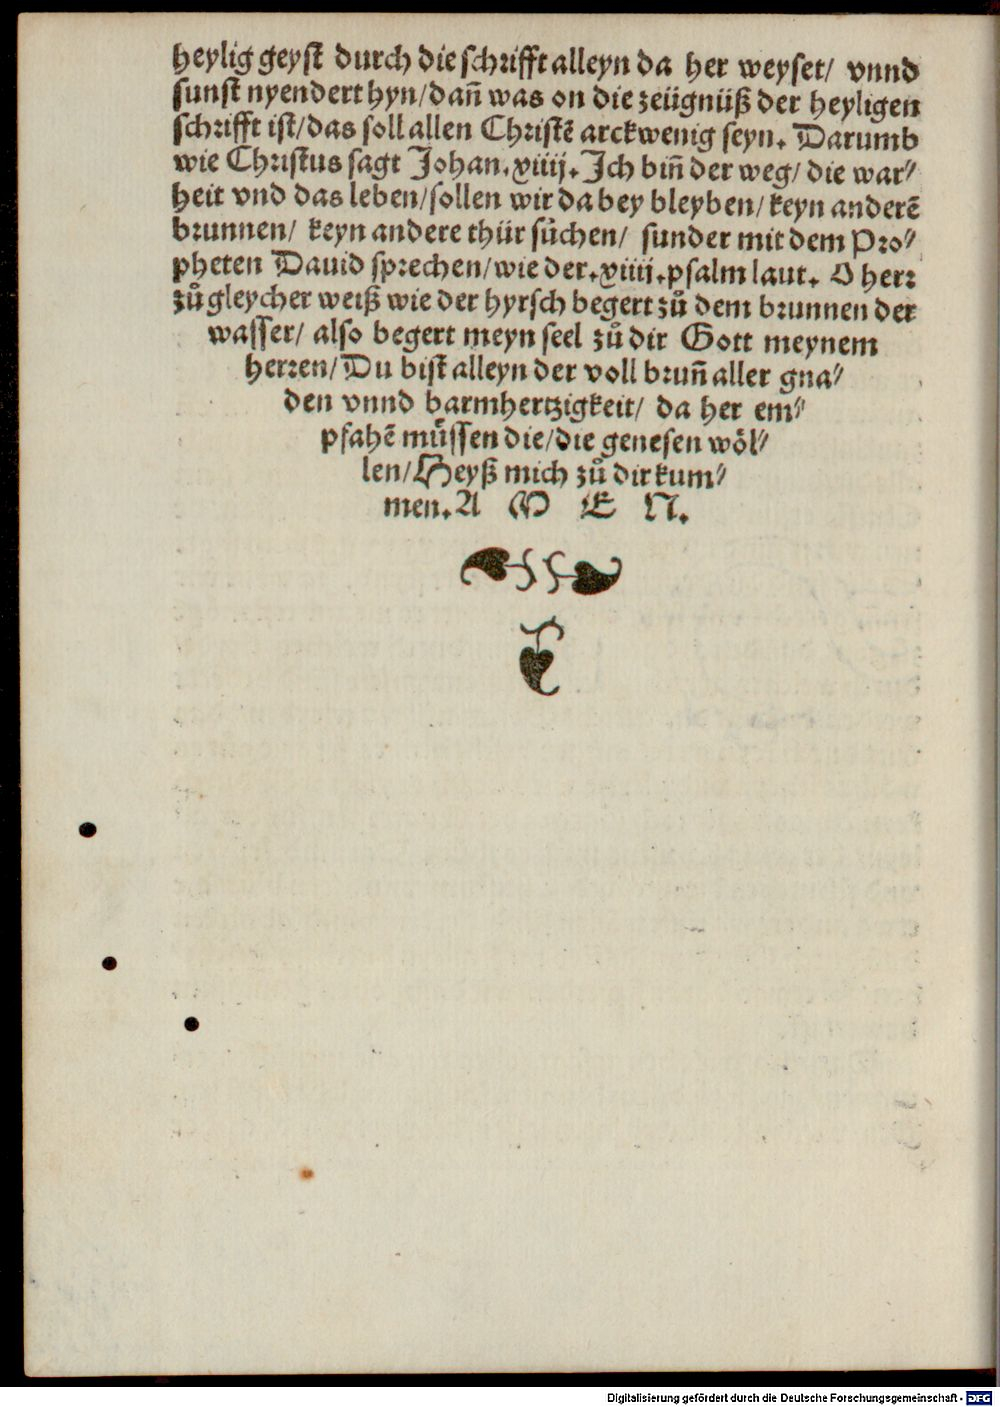 heylig geyst durch die schrifft alleyn da her weyset/ vnnd
sunst nyendert hyn/dañ was on die zeügnüß der heyligen
schrifft ist/das soll allen Christē arckwenig seyn. Darumb
wie Christus sagt Johan.xiiij.Ich biñ der weg/ die war⸗
heit vnd das leben/sollen wir da bey bleyben/ keyn anderē
brunnen/ keyn andere thür sůchen/ sunder mit dem Pro⸗
pheten Dauid sprechen/wie der.xiiii.psalm laut. O herr
zů gleycher weiß wie der hyrsch begert zů dem brunnen der
wasser/ also begert meyn seel zů dir Gott meynem
herren/Du bist alleyn der voll bruñ aller gna⸗
den vnnd barmhertzigkeit/ da her em⸗
pfahē müssen die/die genesen wöl⸗
len/Heyß mich zů dir kum⸗
men.A M E N.
Digitalisierung gefördert durch die Deutsche Forschungsgemeinschaft - DFG